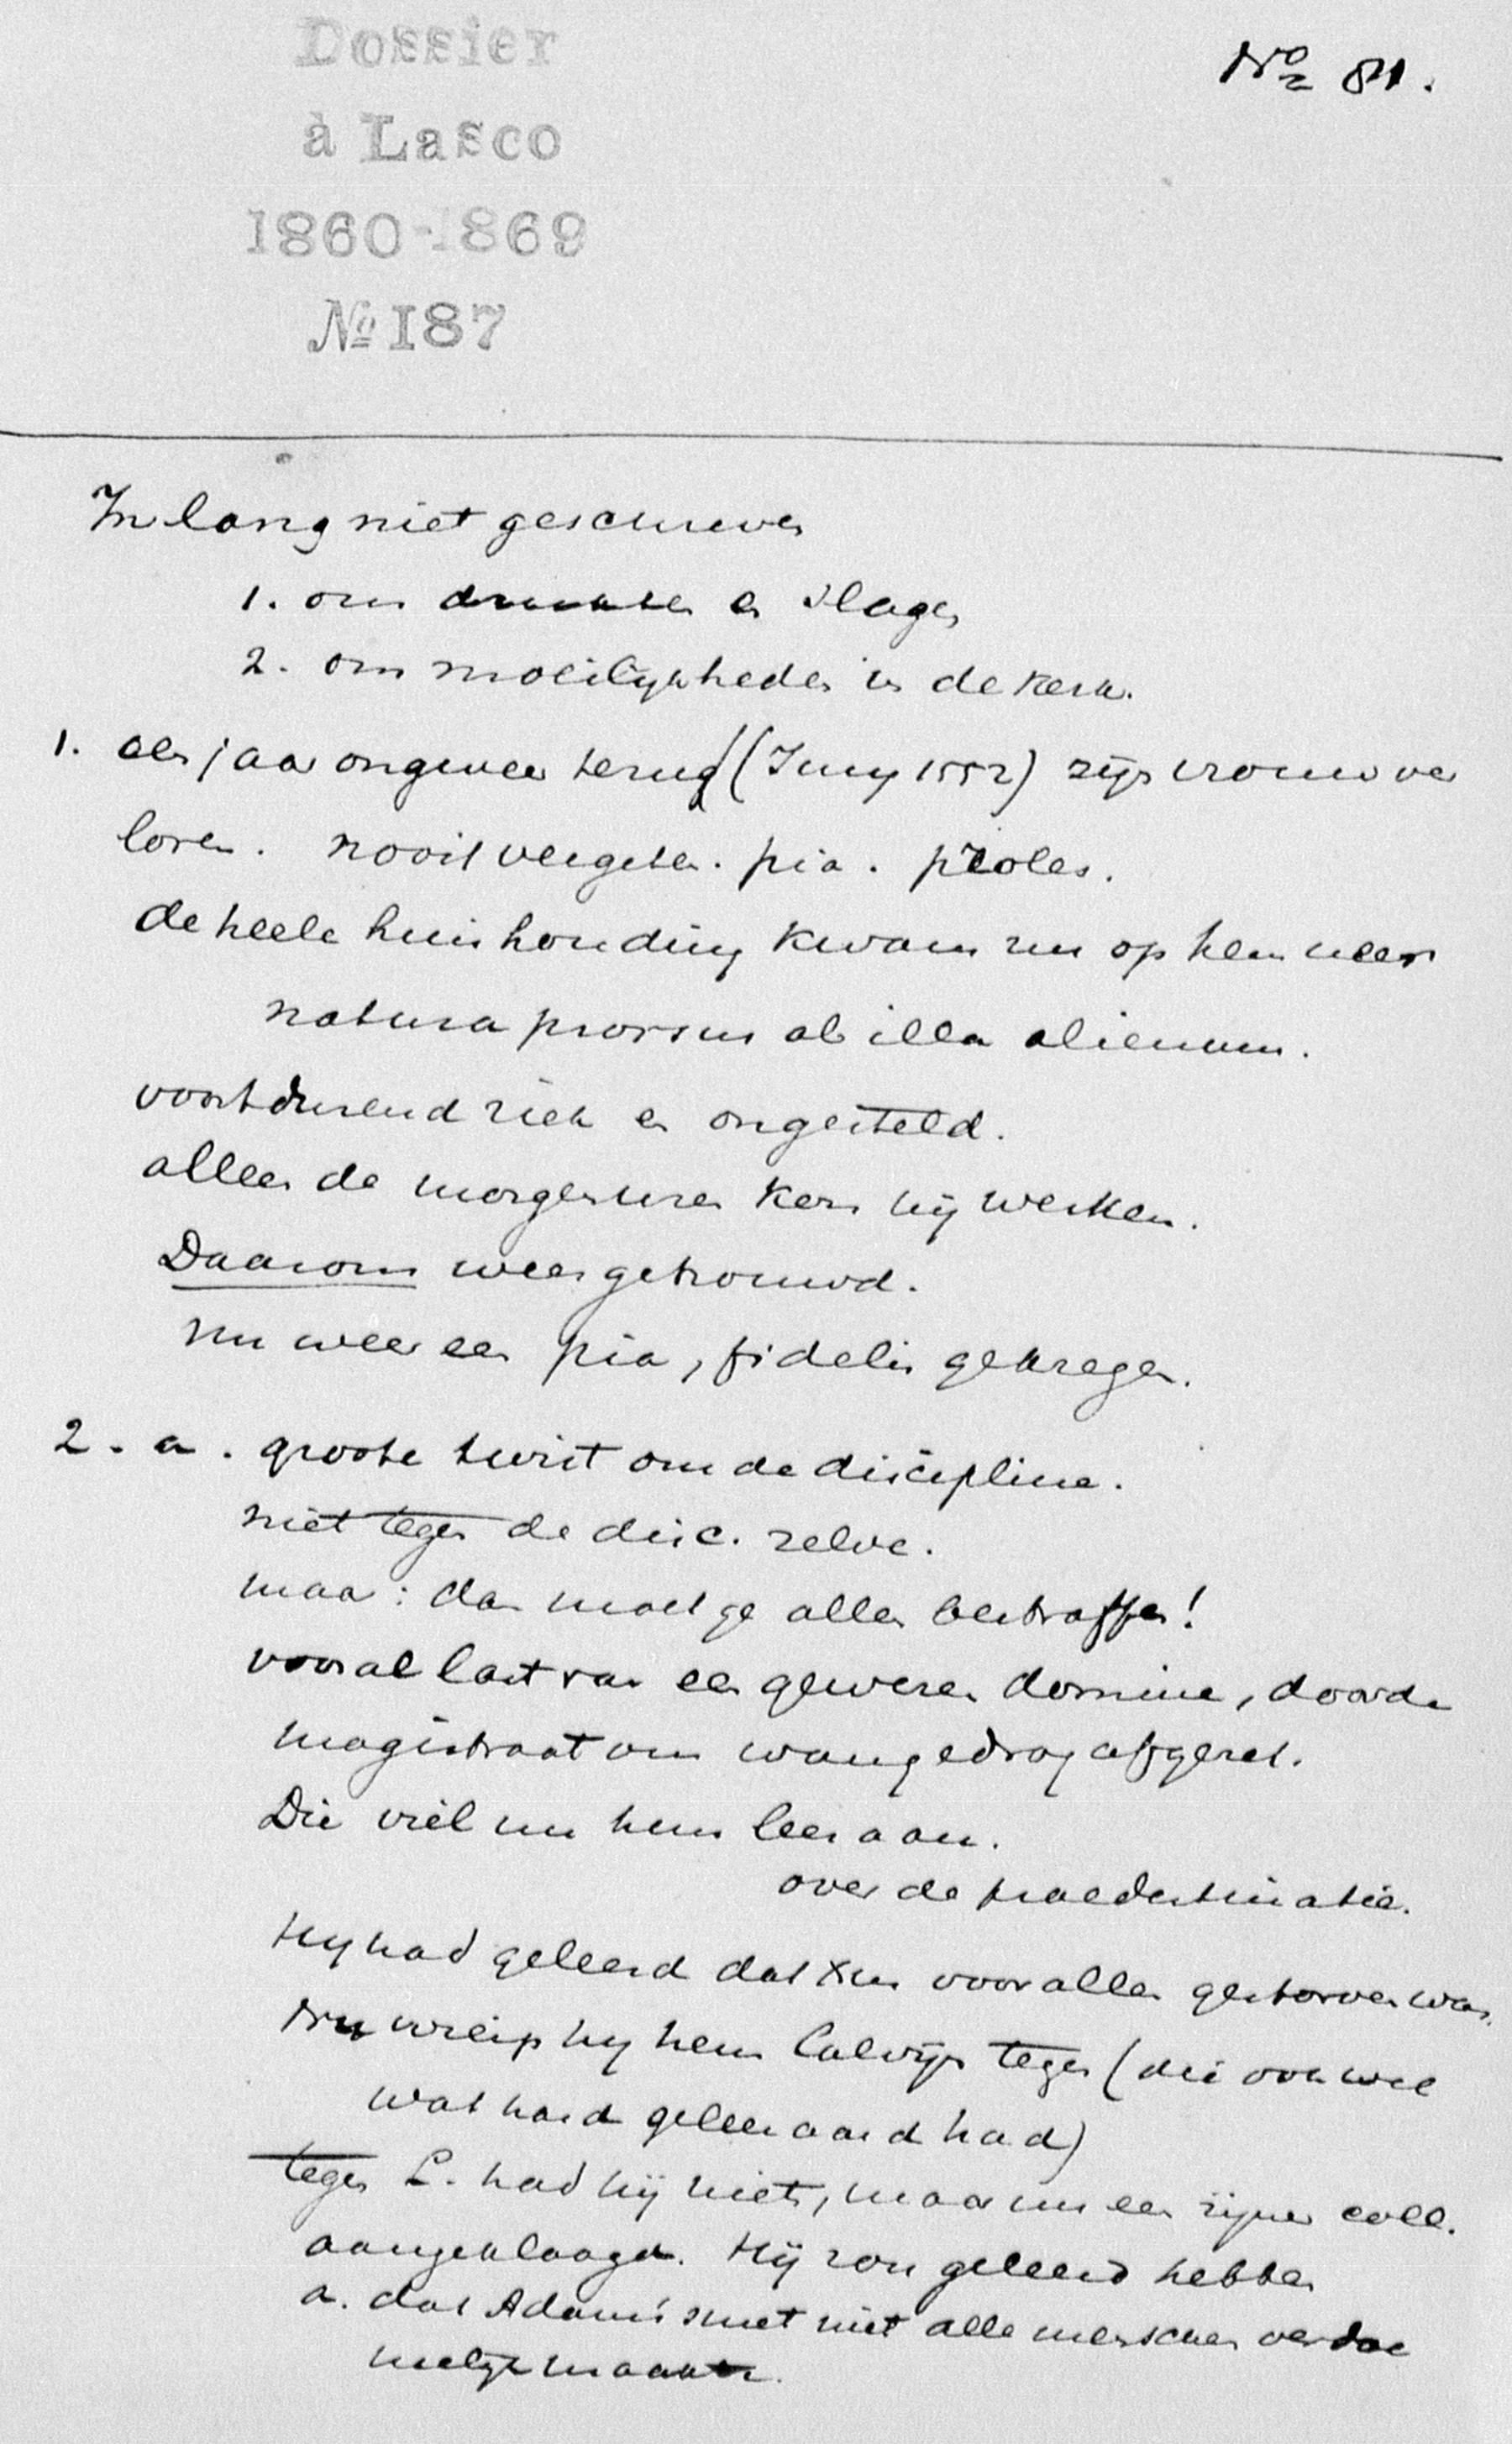 Dossier
à Lasco
1860-1869
№ 187
No 81.
In lang niet geschreven
1. om drukte en slagen
2. om moeilijkheden in de kerk.
1. een jaar ongeveer terug (Juny 1552) zijn vrouw ver
loren. nooit vergeten. pia. proles.
de heele huishouding kwam nu op hem neer
natura prorsus ab illa alienum.
voortdurend ziek en ongesteld.
alleen de morgenuren kon hij werken.
Daarom weer getrouwd.
nu weer een pia, fidelis gekregen.
2. a. groote twist om de discipline.
niet tegen de disc. zelve.
maar: dan moet ge allen bestraffen!
vooral last van een gewezen domine, door de
magistraat om wangedrag afgezet.
Die viel nu hem leer aan.
over de praedestinatie.
Hij had geleerd dat Xus voor allen gestorven was.
Nu wreip hij hem Calvijn tegen (die ook wel
wat hard geleeraard had)
tegen L. had hij niets, maar nu een zijner coll.
aangeklaagd. Hij zou geleerd hebben
a. dat Adam's smet niet alle menschen verdoe
melijk maakte.